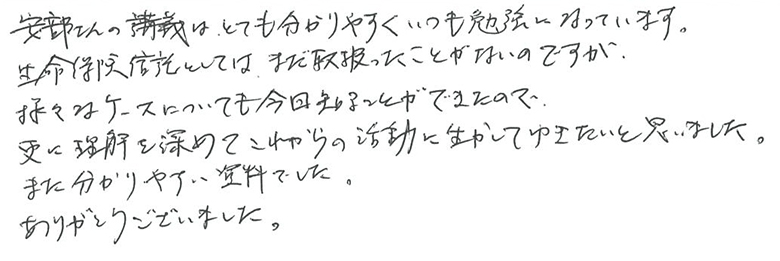 安部さんの講義は、とても分かりやすくいつも勉強になっています。
生命保険信託としては、まだ取扱ったことがないのですが、
様々なケースについても今日知ることができたので、
更に理解を深めてこれからの活動に生かしてゆきたいと思いました。
また分かりやすい資料でした。
ありがとうございました。